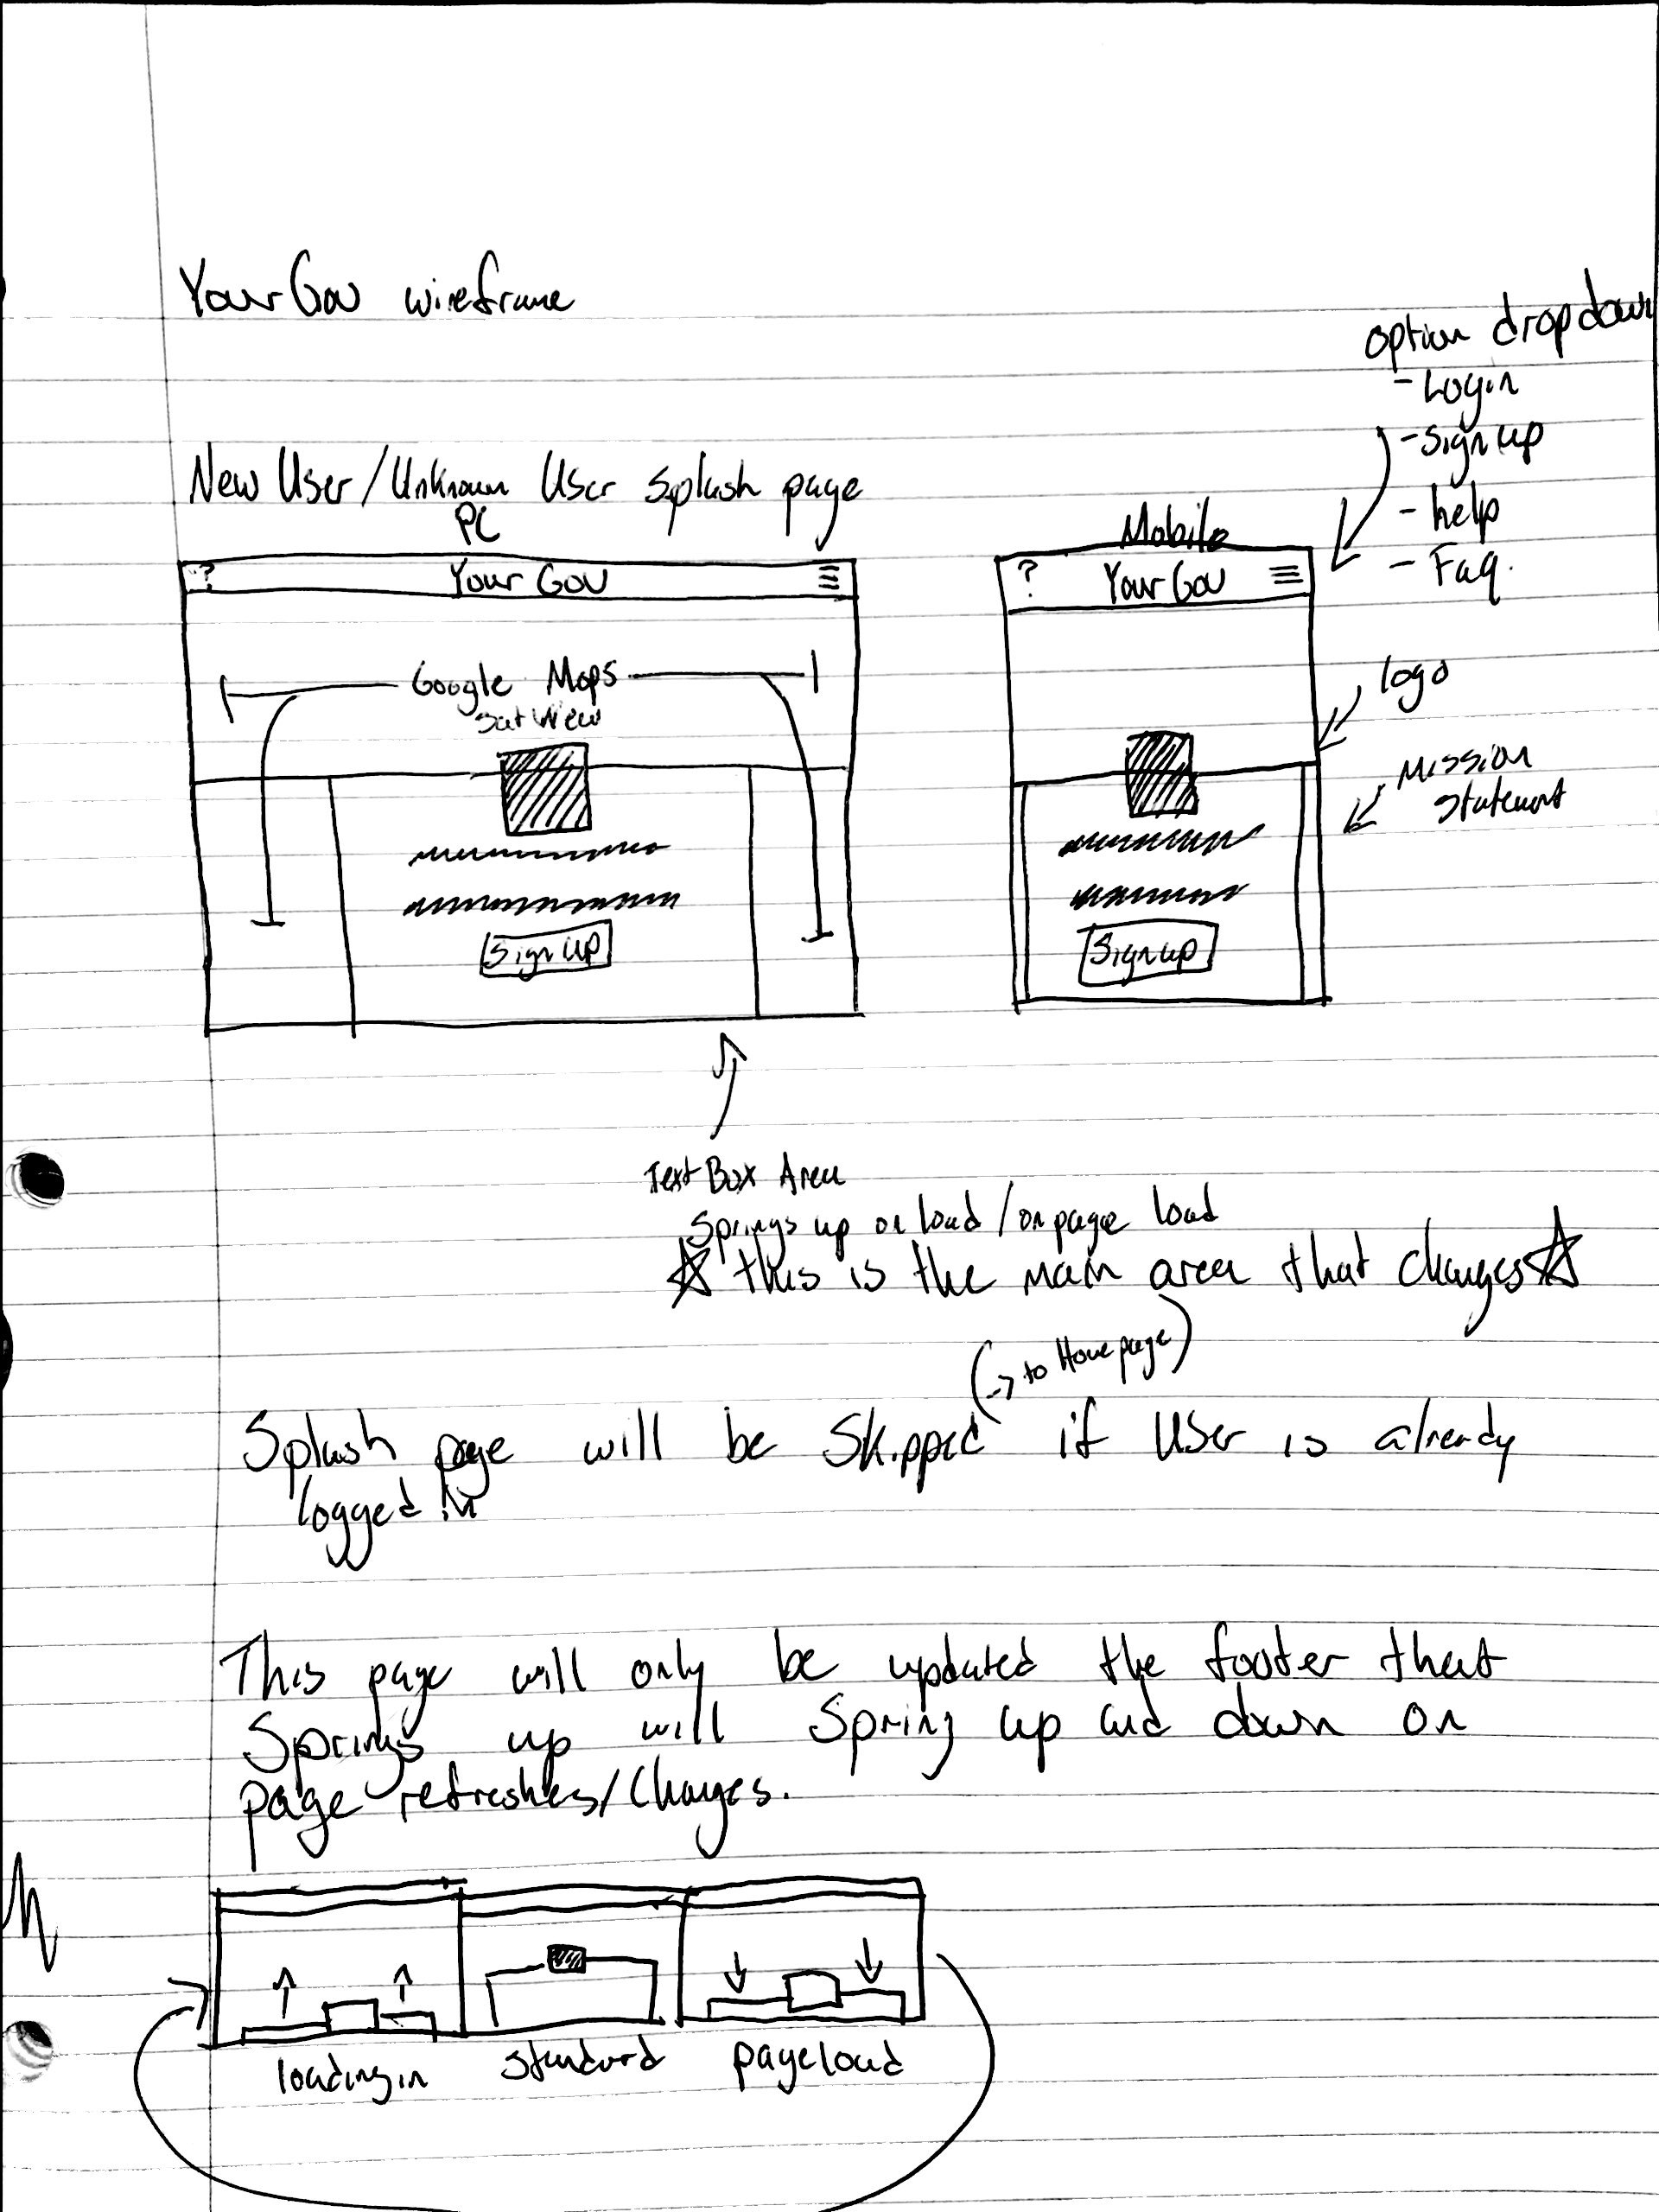 Your Gov wireframe
option dropdown
- Login
- Sign up
- help
- Faq.
New User/Unknown User splash page
PC
Mobile
? Your Gov
? Your Gov
Google Maps
Sat View
logo
Mission
Statement
Sign up
Sign up
Text Box Area
Springs up on load/on page load
☆ this is the main area that changes ☆
(-> to Home page)
Splash page will be skipped if User is already
logged in
This page will only be updated the footer that
Springs up will spring up and down on
page refreshes/changes.
loading in
standard
page load